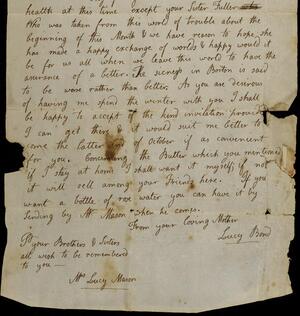 health at this time except your Sister Fuller
Who was taken from this world of trouble about the
beginning of this Month & we have reason to hope she
has made a happy exchange of worlds & happy would it
be for us all when we leave this world to have the
assurance of a better. The sicness in Boston is said
to be worse rather than better. As you are desirous
of having me spend the winter with you I shall
be happy to accept of the kind invitation provided
I can get there & it would suit me better to
come the latter of October if as convenient
for you. Concerning the Butter which you mentioned
if I stay at home I shall want it myself if not
it will sell among your Friends here. If you
want a bottle of rose water you can have it by
Sending by Mr Mason when he comes.
From your Loving Mother
Lucy Bond
PS your Brothers & Sisters
all wish to be remembered
to you —
Mrs Lucy Mason